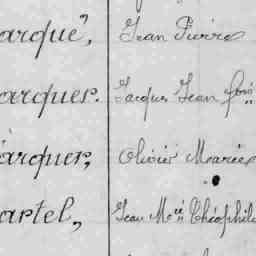 arqué, Jean Pierre
arquer. Jacques Jean fois
arquer, Olivier Marie
artel, Jean Mie Théophile